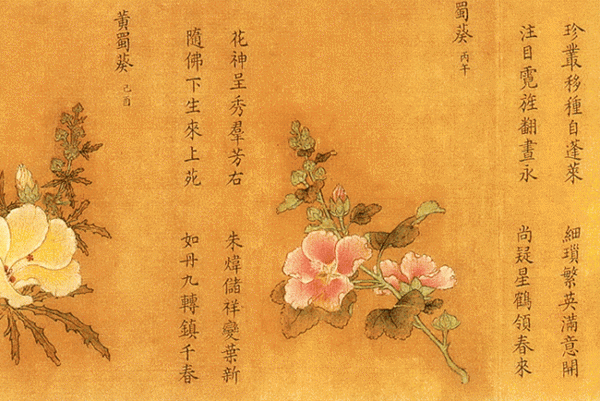 珍叢移種自蓬萊 細瑣繁英滿意開
注目霓旌翻晝永 尚疑星鶴領春來
蜀葵 丙午
花神呈秀羣芳右 朱煒儲祥變葉新
隨佛下生來上苑 如丹九轉鎮千春
黃蜀葵 己酉